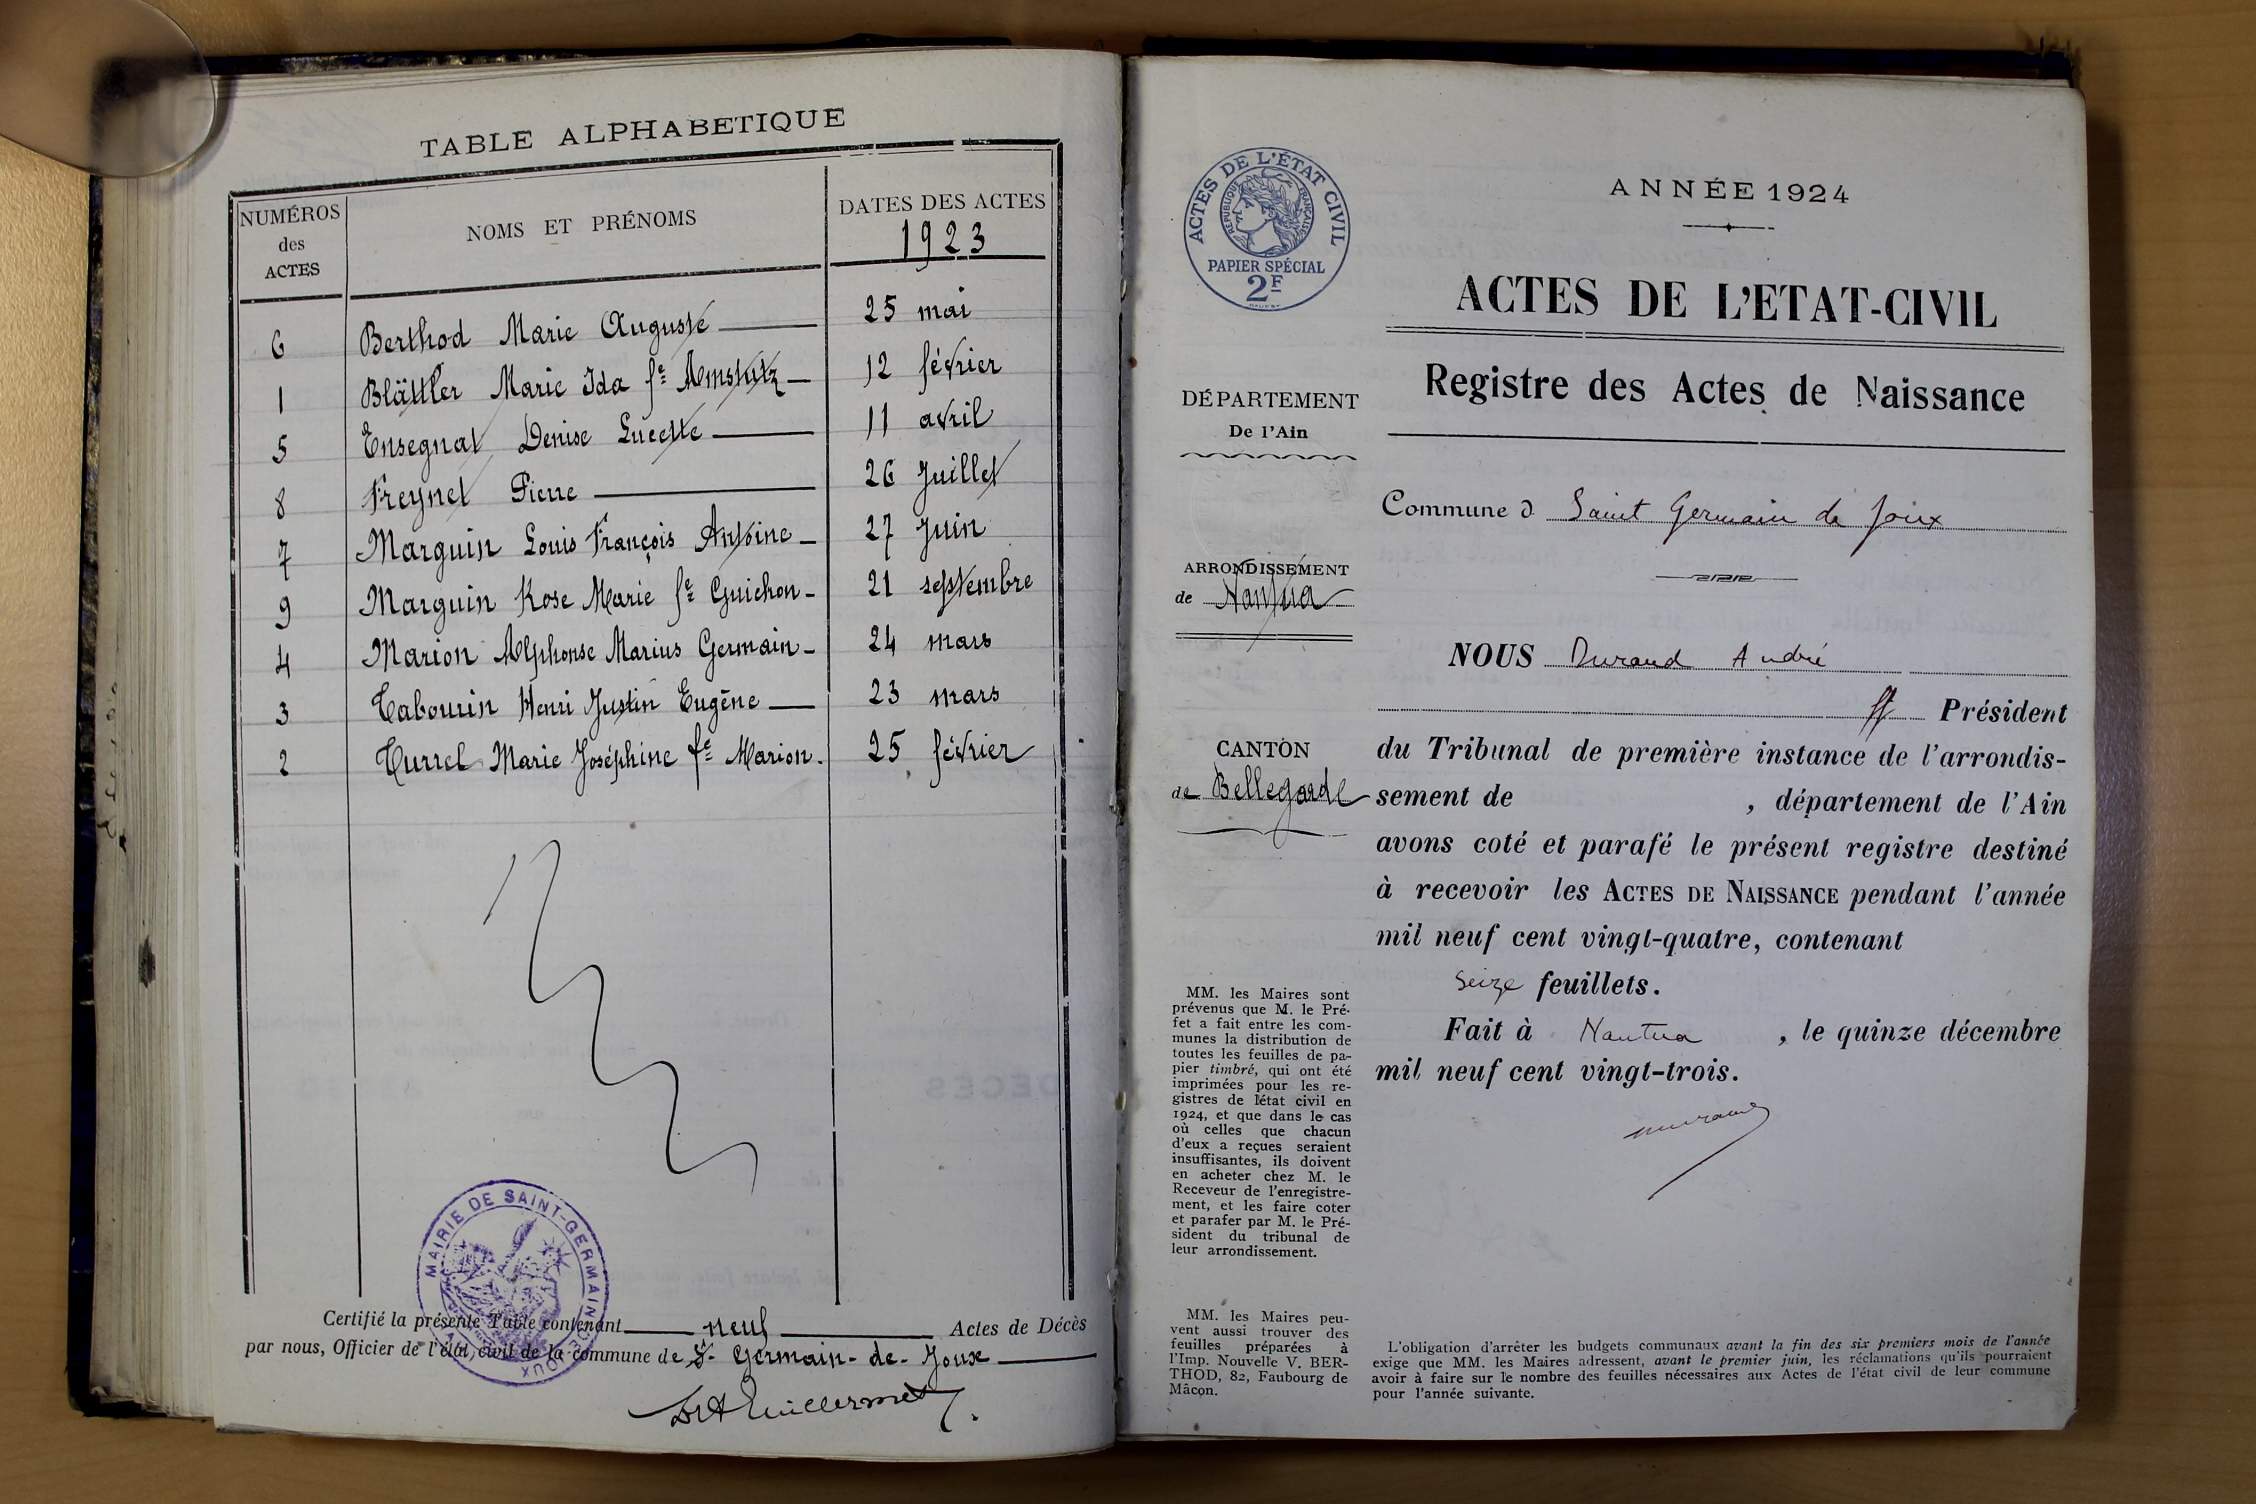 TABLE ALPHABETIQUE
NUMÉROS des ACTES
NOMS ET PRÉNOMS
DATES DES ACTES
1923
6 Berthod Marie Auguste 25 mai
1 Blättler Marie Ida fe Amstutz 12 février
5 Ensegnat Denise Lucette 11 avril
8 Freynet Pierre 26 Juillet
7 Marguin Louis François Antoine 27 Juin
9 Marguin Rose Marie fe Guichon 21 septembre
4 Marion Alphonse Marius Germain 24 mars
3 Tabourin Henri Justin Eugène 23 mars
2 Turrel Marie Joséphine fe Marion. 25 février
MAIRIE DE SAINT-GERMAIN DE JOUX
Certifié la présente Table contenant neuf Actes de Décès
par nous, Officier de l'état civil de la commune de St Germain-de-Joux
ACTES DE L'ÉTAT CIVIL
RÉPUBLIQUE FRANÇAISE
PAPIER SPÉCIAL
2F
ANNÉE 1924
ACTES DE L'ETAT-CIVIL
Registre des Actes de Naissance
DÉPARTEMENT
De l'Ain
Commune d Saint Germain de Joux
ARRONDISSEMENT
de Nantua
NOUS Durand André
ff Président
CANTON
de Bellegarde
du Tribunal de première instance de l'arrondis-
sement de , département de l'Ain
avons coté et parafé le présent registre destiné
à recevoir les ACTES DE NAISSANCE pendant l'année
mil neuf cent vingt-quatre, contenant
seize feuillets.
Fait à Nantua , le quinze décembre
mil neuf cent vingt-trois.
MM. les Maires sont
prévenus que M. le Pré-
fet a fait entre les com-
munes la distribution de
toutes les feuilles de pa-
pier timbré, qui ont été
imprimées pour les re-
gistres de l'état civil en
1924, et que dans le cas
où celles que chacun
d'eux a reçues seraient
insuffisantes, ils doivent
en acheter chez M. le
Receveur de l'enregistre-
ment, et les faire coter
et parafer par M. le Pré-
sident du tribunal de
leur arrondissement.
MM. les Maires peu-
vent aussi trouver des
feuilles préparées à
l'Imp. Nouvelle V. BER-
THOD, 82, Faubourg de
Mâcon.
L'obligation d'arrêter les budgets communaux avant la fin des six premiers mois de l'année
exige que MM. les Maires adressent, avant le premier juin, les réclamations qu'ils pourraient
avoir à faire sur le nombre des feuilles nécessaires aux Actes de l'état civil de leur commune
pour l'année suivante.